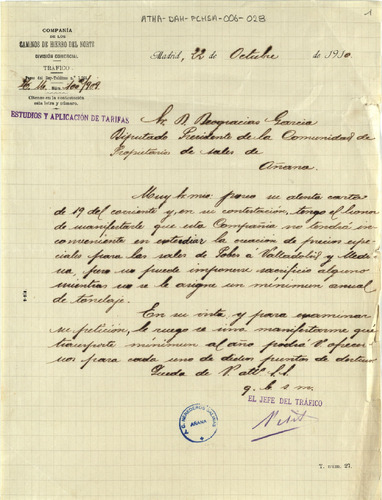 ATHA-DAH-PCHSA-006-028
1
COMPAÑÍA
DE LOS
CAMINOS DE HIERRO DEL NORTE
DIVISIÓN COMERCIAL
TRÁFICO
Cítense en la contestación
esta letra y número.
ESTUDIOS Y APLICACIÓN DE TARIFAS
Madrid, 22 Octubre de 1910.
Sr. D. Deogracias Garcia
Diputado Presidente de la Comunidad de
Propietarios de sales de
Añana.
Muy Sr mio: por su atenta carta
de 19 del corriente y, en su contestación, tengo el honor
de manifestarle que esta Compañia no tendrá in-
conveniente en estudiar la creación de precios espe-
ciales para las sales de Pobes á Valladolid y Medi-
na, pero no puede imponerse sacrificio alguno
mientras no se le asigne un minimum anual
de tonelaje.
En su vista, y para examinar
su petición, le ruego se sirva manifestarme que
transporte minimum al año podrá V. ofrecer-
nos para cada uno de dichos puntos de destino
Queda de V. atto. s.s.
q. b. s. m.
EL JEFE DEL TRÁFICO
AÑANA
T. núm. 27.